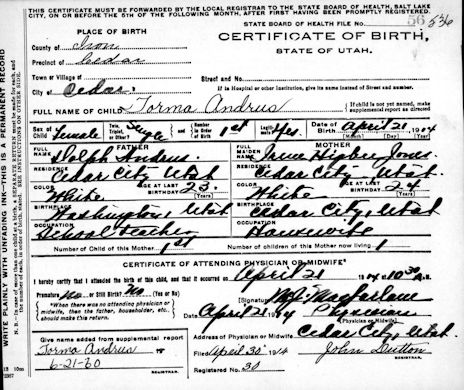 THIS CERTIFICATE MUST BE FORWARDED BY THE LOCAL REGISTRAR TO THE STATE BOARD OF HEALTH, SALT LAKE
CITY, ON OR BEFORE THE 5TH OF THE FOLLOWING MONTH, AFTER FIRST HAVING BEEN PROMPTLY REGISTERED.
STATE BOARD OF HEALTH FILE No. 56 536
PLACE OF BIRTH
CERTIFICATE OF BIRTH,
County of Iron
STATE OF UTAH.
Precinct of Cedar
Town or Village of
Street and No.
City of Cedar.
If in Hospital or other institution, give its name instead of Street and number.
FULL NAME OF CHILD Torma Andrus
If child is not yet named, make supplemental report as directed
Sex of Child Female Twin, Triplet, or Other? Single and Number in Order of Birth 1st Legitimate? Yes. Date of Birth April 21 1914
(Month) (Day) (Year)
FATHER MOTHER
FULL NAME Dolph Andrus FULL MAIDEN NAME Irene Higbee Jones.
RESIDENCE Cedar City Utah RESIDENCE Cedar City, Utah.
COLOR White AGE AT LAST BIRTHDAY 23. (Years) COLOR White AGE AT LAST BIRTHDAY 24 (Years)
BIRTHPLACE Washington, Utah BIRTHPLACE Cedar City, Utah
OCCUPATION School teacher OCCUPATION Housewife
Number of Child of this Mother 1st Number of Children of this mother now living 1
CERTIFICATE OF ATTENDING PHYSICIAN OR MIDWIFE
I hereby certify that I attended the birth of this child, and that it occurred on April 21 1914 at 10:30 A.M.
Premature? No or Still Birth? No (Yes or No)
*When there was no attending physician or midwife, then the father, householder, etc. should make this return.
(Signature) Macfarlane
Date April 21 1914 Physician
(Physician or Midwife)
Give name added from supplemental report
Address of Physician or Midwife Cedar City, Utah.
Torma Andrus
Filed April 30 1914 John Dutton
6-21-60
REGISTRAR.
Registered No. 30
REGISTRAR
WRITE PLAINLY WITH UNFADING INK—THIS IS A PERMANENT RECORD